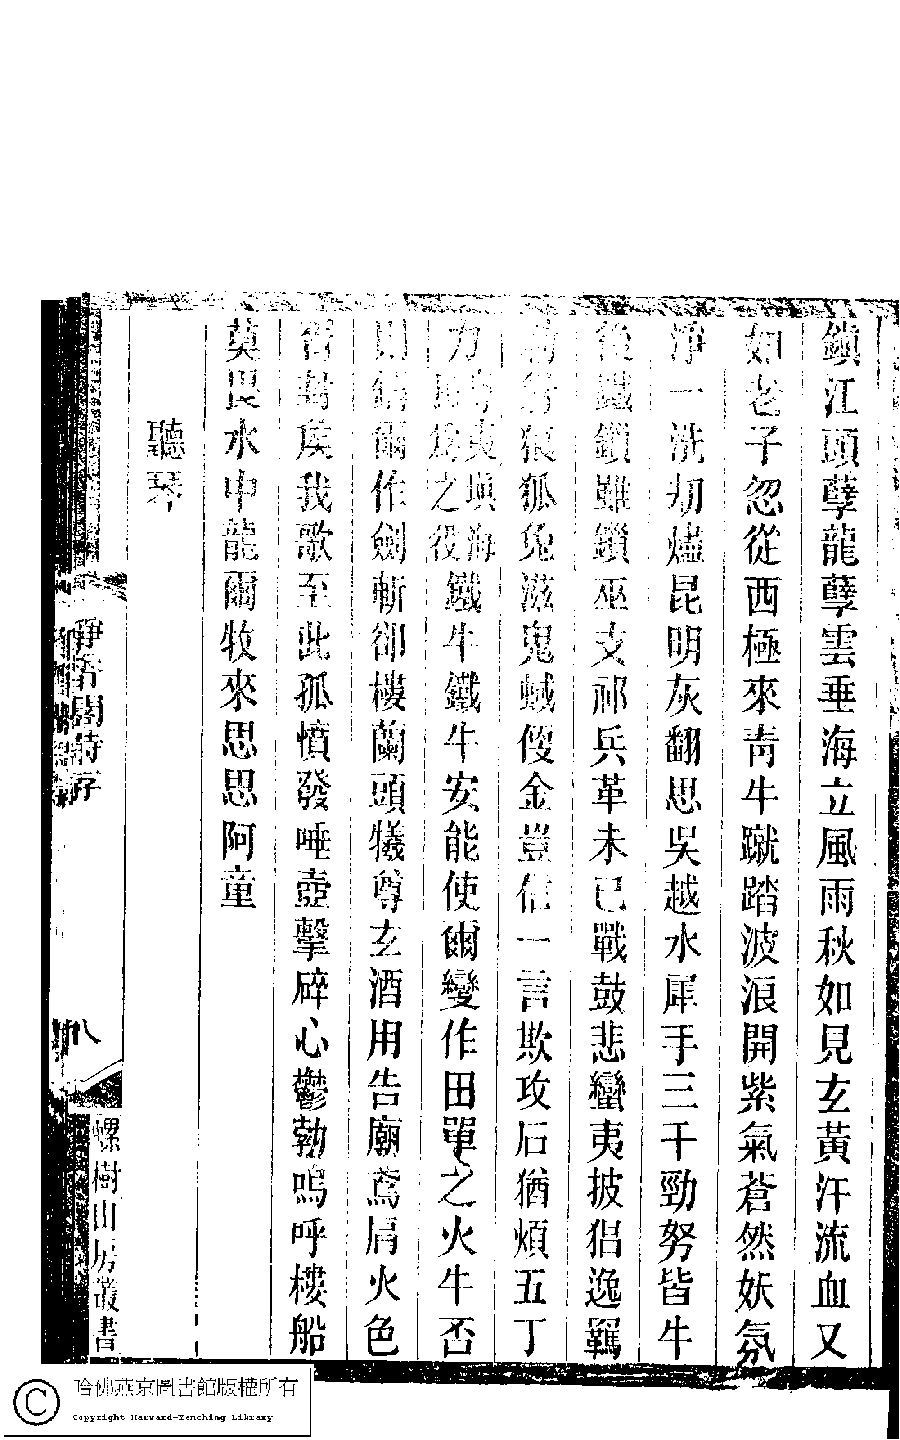 鎮江頭孽龍孽雲垂海立風雨秋如見玄黃汗流血又
如老子忽從西極來青牛蹴踏波浪開紫氣蒼然妖氛
淨一洗刧燼昆明灰翻思吳越水犀手三千勁努皆牛
後鐵鎖雖鎖巫支祁兵革未已戰鼓悲蠻夷披猖逸羈
狼狐兔滋鬼蜮傻金豈信一言欺攻石猶煩五丁
力 夷填海 之役 鐵牛鐵牛安能使爾變作田單之火牛否
則 爾作劍斬卻樓蘭頭犧尊玄酒用告廟鳶肩火色
侯我歌至此孤憤發唾壺擊碎心鬱勃嗚呼樓船
莫畏水中龍爾牧來思思阿童
聽琴
靜 閣詩存
八
螺樹山房叢書
哈佛燕京圖書館版權所有
Copyright Harvard-Yenching Library